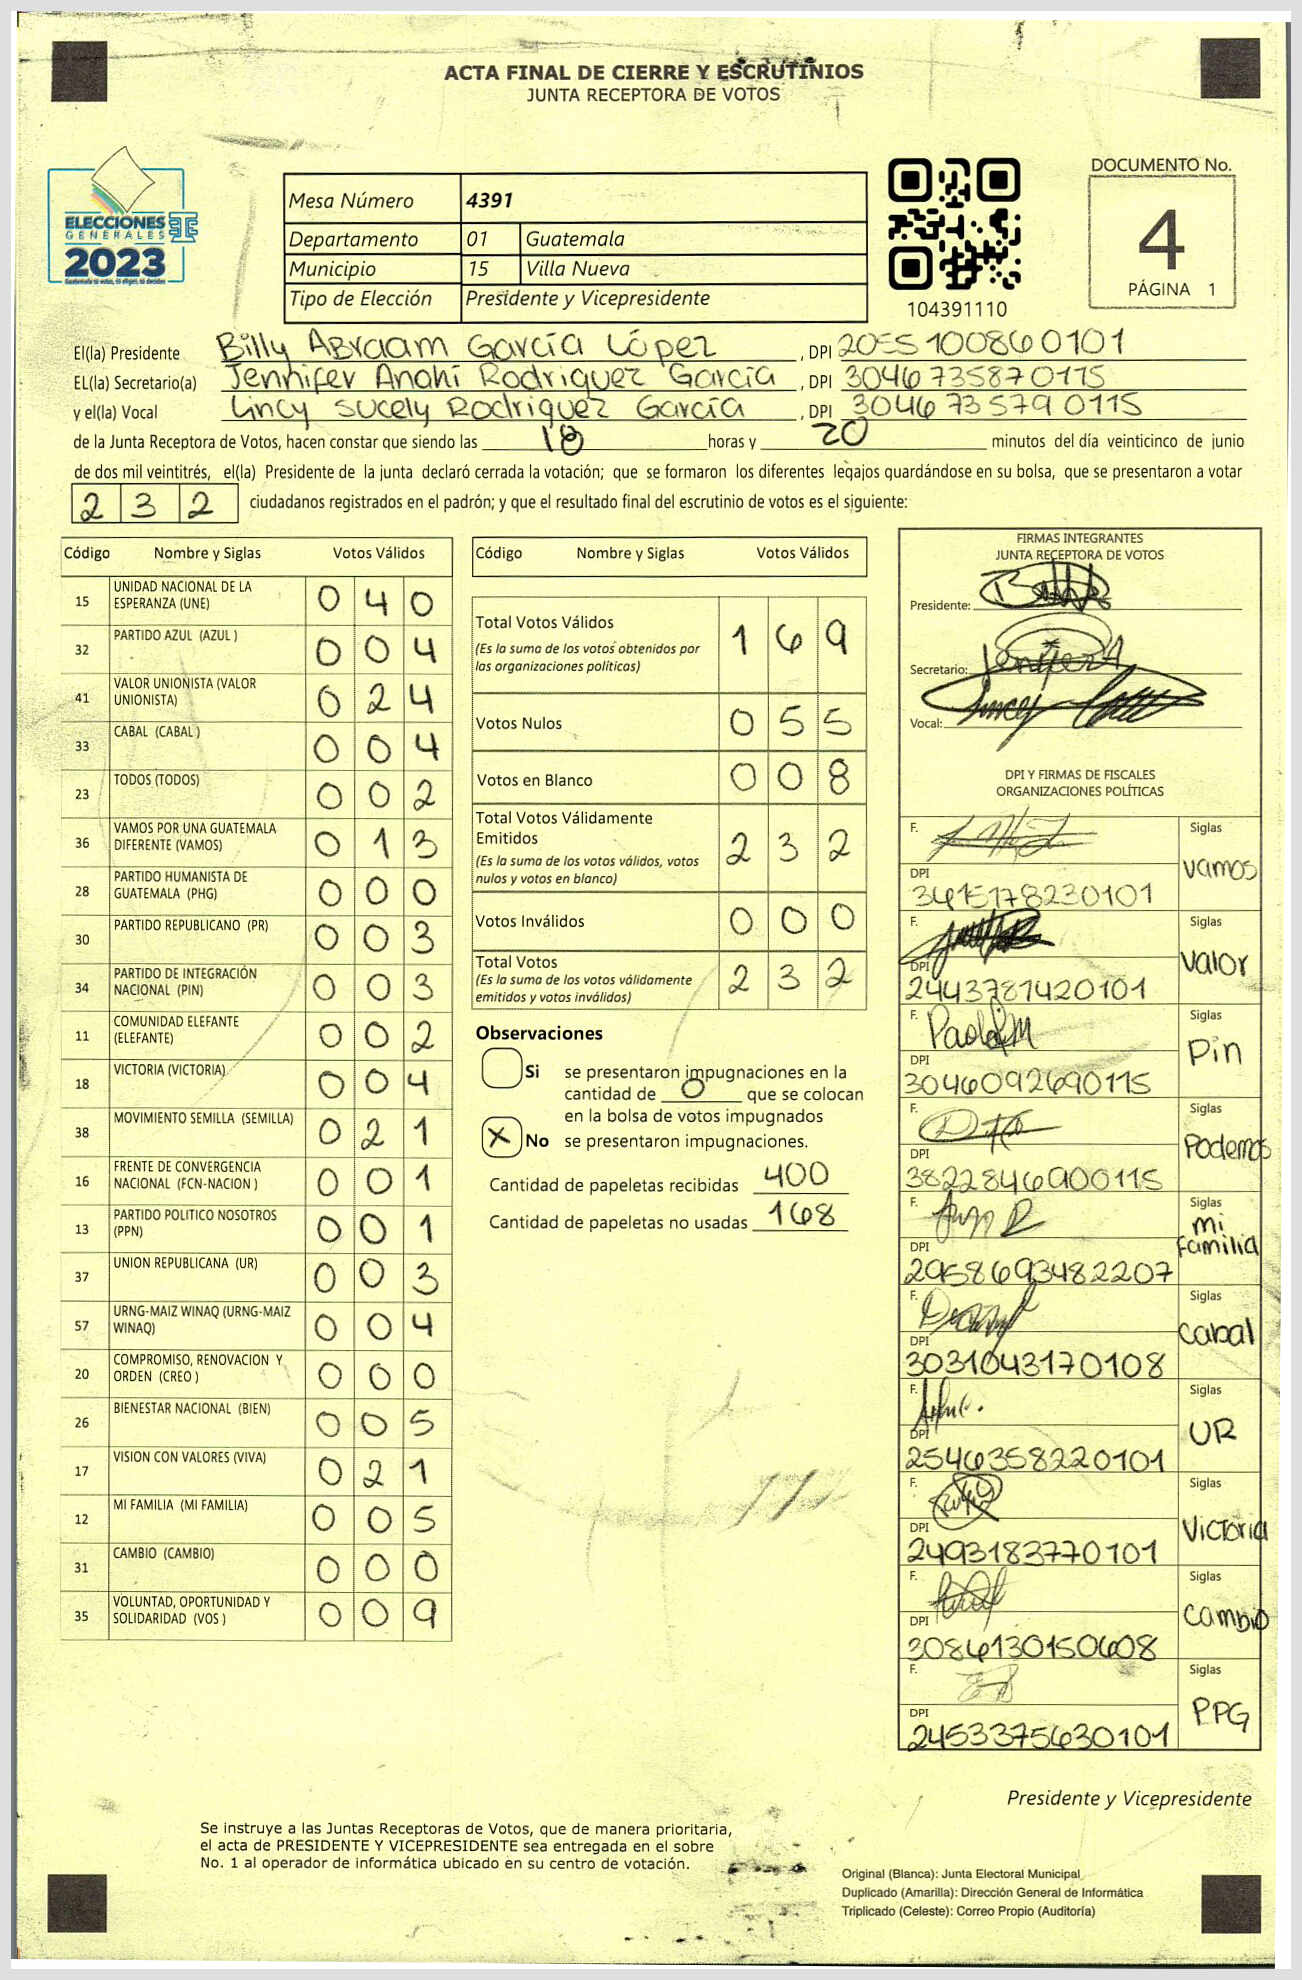 ACTA FINAL DE CIERRE Y ESCRUTINIOS
JUNTA RECEPTORA DE VOTOS
ELECCIONES
GENERALES
2023
Mesa Número 4391
Departamento 01 Guatemala
Municipio 15 Villa Nueva
Tipo de Elección Presidente y Vicepresidente
104391110
DOCUMENTO No.
4
PÁGINA 1
El(la) Presidente Billy Abraam García López, DPI 2055100860101
EL(la) Secretario(a) Jennifer Anahí Rodriguez García, DPI 3046735870115
y el(la) Vocal Lincy Sucely Rodriguez García, DPI 3046735790115
de la Junta Receptora de Votos, hacen constar que siendo las 18 horas y 20 minutos del día veinticinco de junio
de dos mil veintitrés, el(la) Presidente de la junta declaró cerrada la votación; que se formaron los diferentes legajos guardándose en su bolsa, que se presentaron a votar
232 ciudadanos registrados en el padrón; y que el resultado final del escrutinio de votos es el siguiente:
Código Nombre y Siglas Votos Válidos
15 UNIDAD NACIONAL DE LA ESPERANZA (UNE) 0 4 0
32 PARTIDO AZUL (AZUL ) 0 0 4
41 VALOR UNIONISTA (VALOR UNIONISTA) 0 2 4
33 CABAL (CABAL ) 0 0 4
23 TODOS (TODOS) 0 0 2
36 VAMOS POR UNA GUATEMALA DIFERENTE (VAMOS) 0 1 3
28 PARTIDO HUMANISTA DE GUATEMALA (PHG) 0 0 0
30 PARTIDO REPUBLICANO (PR) 0 0 3
34 PARTIDO DE INTEGRACIÓN NACIONAL (PIN) 0 0 3
11 COMUNIDAD ELEFANTE (ELEFANTE) 0 0 2
18 VICTORIA (VICTORIA) 0 0 4
38 MOVIMIENTO SEMILLA (SEMILLA) 0 2 1
16 FRENTE DE CONVERGENCIA NACIONAL (FCN-NACION ) 0 0 1
13 PARTIDO POLITICO NOSOTROS (PPN) 0 0 1
37 UNION REPUBLICANA (UR) 0 0 3
57 URNG-MAIZ WINAQ (URNG-MAIZ WINAQ) 0 0 4
20 COMPROMISO, RENOVACION Y ORDEN (CREO ) 0 0 0
26 BIENESTAR NACIONAL (BIEN) 0 0 5
17 VISION CON VALORES (VIVA) 0 2 1
12 MI FAMILIA (MI FAMILIA) 0 0 5
31 CAMBIO (CAMBIO) 0 0 0
35 VOLUNTAD, OPORTUNIDAD Y SOLIDARIDAD (VOS ) 0 0 9
Código Nombre y Siglas Votos Válidos
Total Votos Válidos 1 6 9
(Es la suma de los votos obtenidos por las organizaciones políticas)
Votos Nulos 0 5 5
Votos en Blanco 0 0 8
Total Votos Válidamente Emitidos 2 3 2
(Es la suma de los votos válidos, votos nulos y votos en blanco)
Votos Inválidos 0 0 0
Total Votos 2 3 2
(Es la suma de los votos válidamente emitidos y votos inválidos)
Observaciones
Si se presentaron impugnaciones en la
cantidad de 0 que se colocan
en la bolsa de votos impugnados
X No se presentaron impugnaciones.
Cantidad de papeletas recibidas 400
Cantidad de papeletas no usadas 168
FIRMAS INTEGRANTES
JUNTA RECEPTORA DE VOTOS
Presidente:
Secretario:
Vocal:
DPI Y FIRMAS DE FISCALES
ORGANIZACIONES POLÍTICAS
F. Siglas vamos
DPI 3415178230101
F. Siglas valor
DPI 2443781420101
F. Siglas Pin
DPI 3046092690115
F. Siglas Podemos
DPI 3822846900115
F. Siglas mi familia
DPI 2958693482207
F. Siglas cabal
DPI 3031043170108
F. Siglas UR
DPI 2546358220101
F. Siglas Victoria
DPI 2493183770101
F. Siglas cambio
DPI 3086130150608
F. Siglas PPG
DPI 2453375630101
Presidente y Vicepresidente
Se instruye a las Juntas Receptoras de Votos, que de manera prioritaria,
el acta de PRESIDENTE Y VICEPRESIDENTE sea entregada en el sobre
No. 1 al operador de informática ubicado en su centro de votación.
Original (Blanca): Junta Electoral Municipal
Duplicado (Amarilla): Dirección General de Informática
Triplicado (Celeste): Correo Propio (Auditoría)